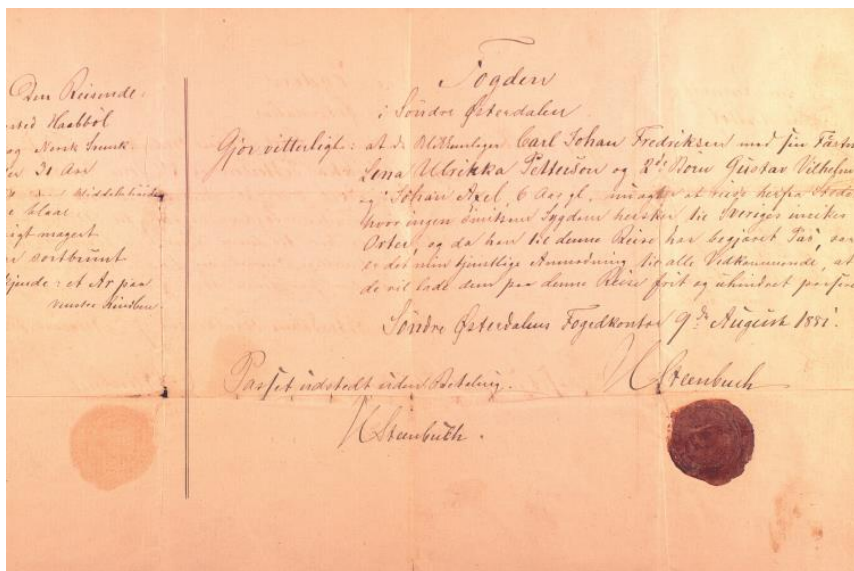 Den Reisende.
Haabböl
og Norsk Svensk
31 Aar
Middelstanden
blaae
magert
sortbrunt
et Ar paa
venstre Kindben.
Fogden
i Söndre Østerdalen
Gjör vitterligt: at de Blikkenslager Carl Johan Fredriksen med sin Fästm
Lena Ulrikka Petterson og 2de Börn Gustav Vilhelm
og Johan Axel, 6 Aar gl, agter at reise herfra Stedet
hvor ingen smitsom Sygdom hersker til Sveriges
Orter, og da han til denne Reise har begjæret Pas, saa
er det min tjenstlige Anmodning til alle Vedkommende, at
de vil lade dem paa denne Reise frit og uhindret passere
Söndre Østerdalens Fogedkontor 9de August 1881.
Passet udstedt uden Betaling.
Steenbuch
Steenbuch.